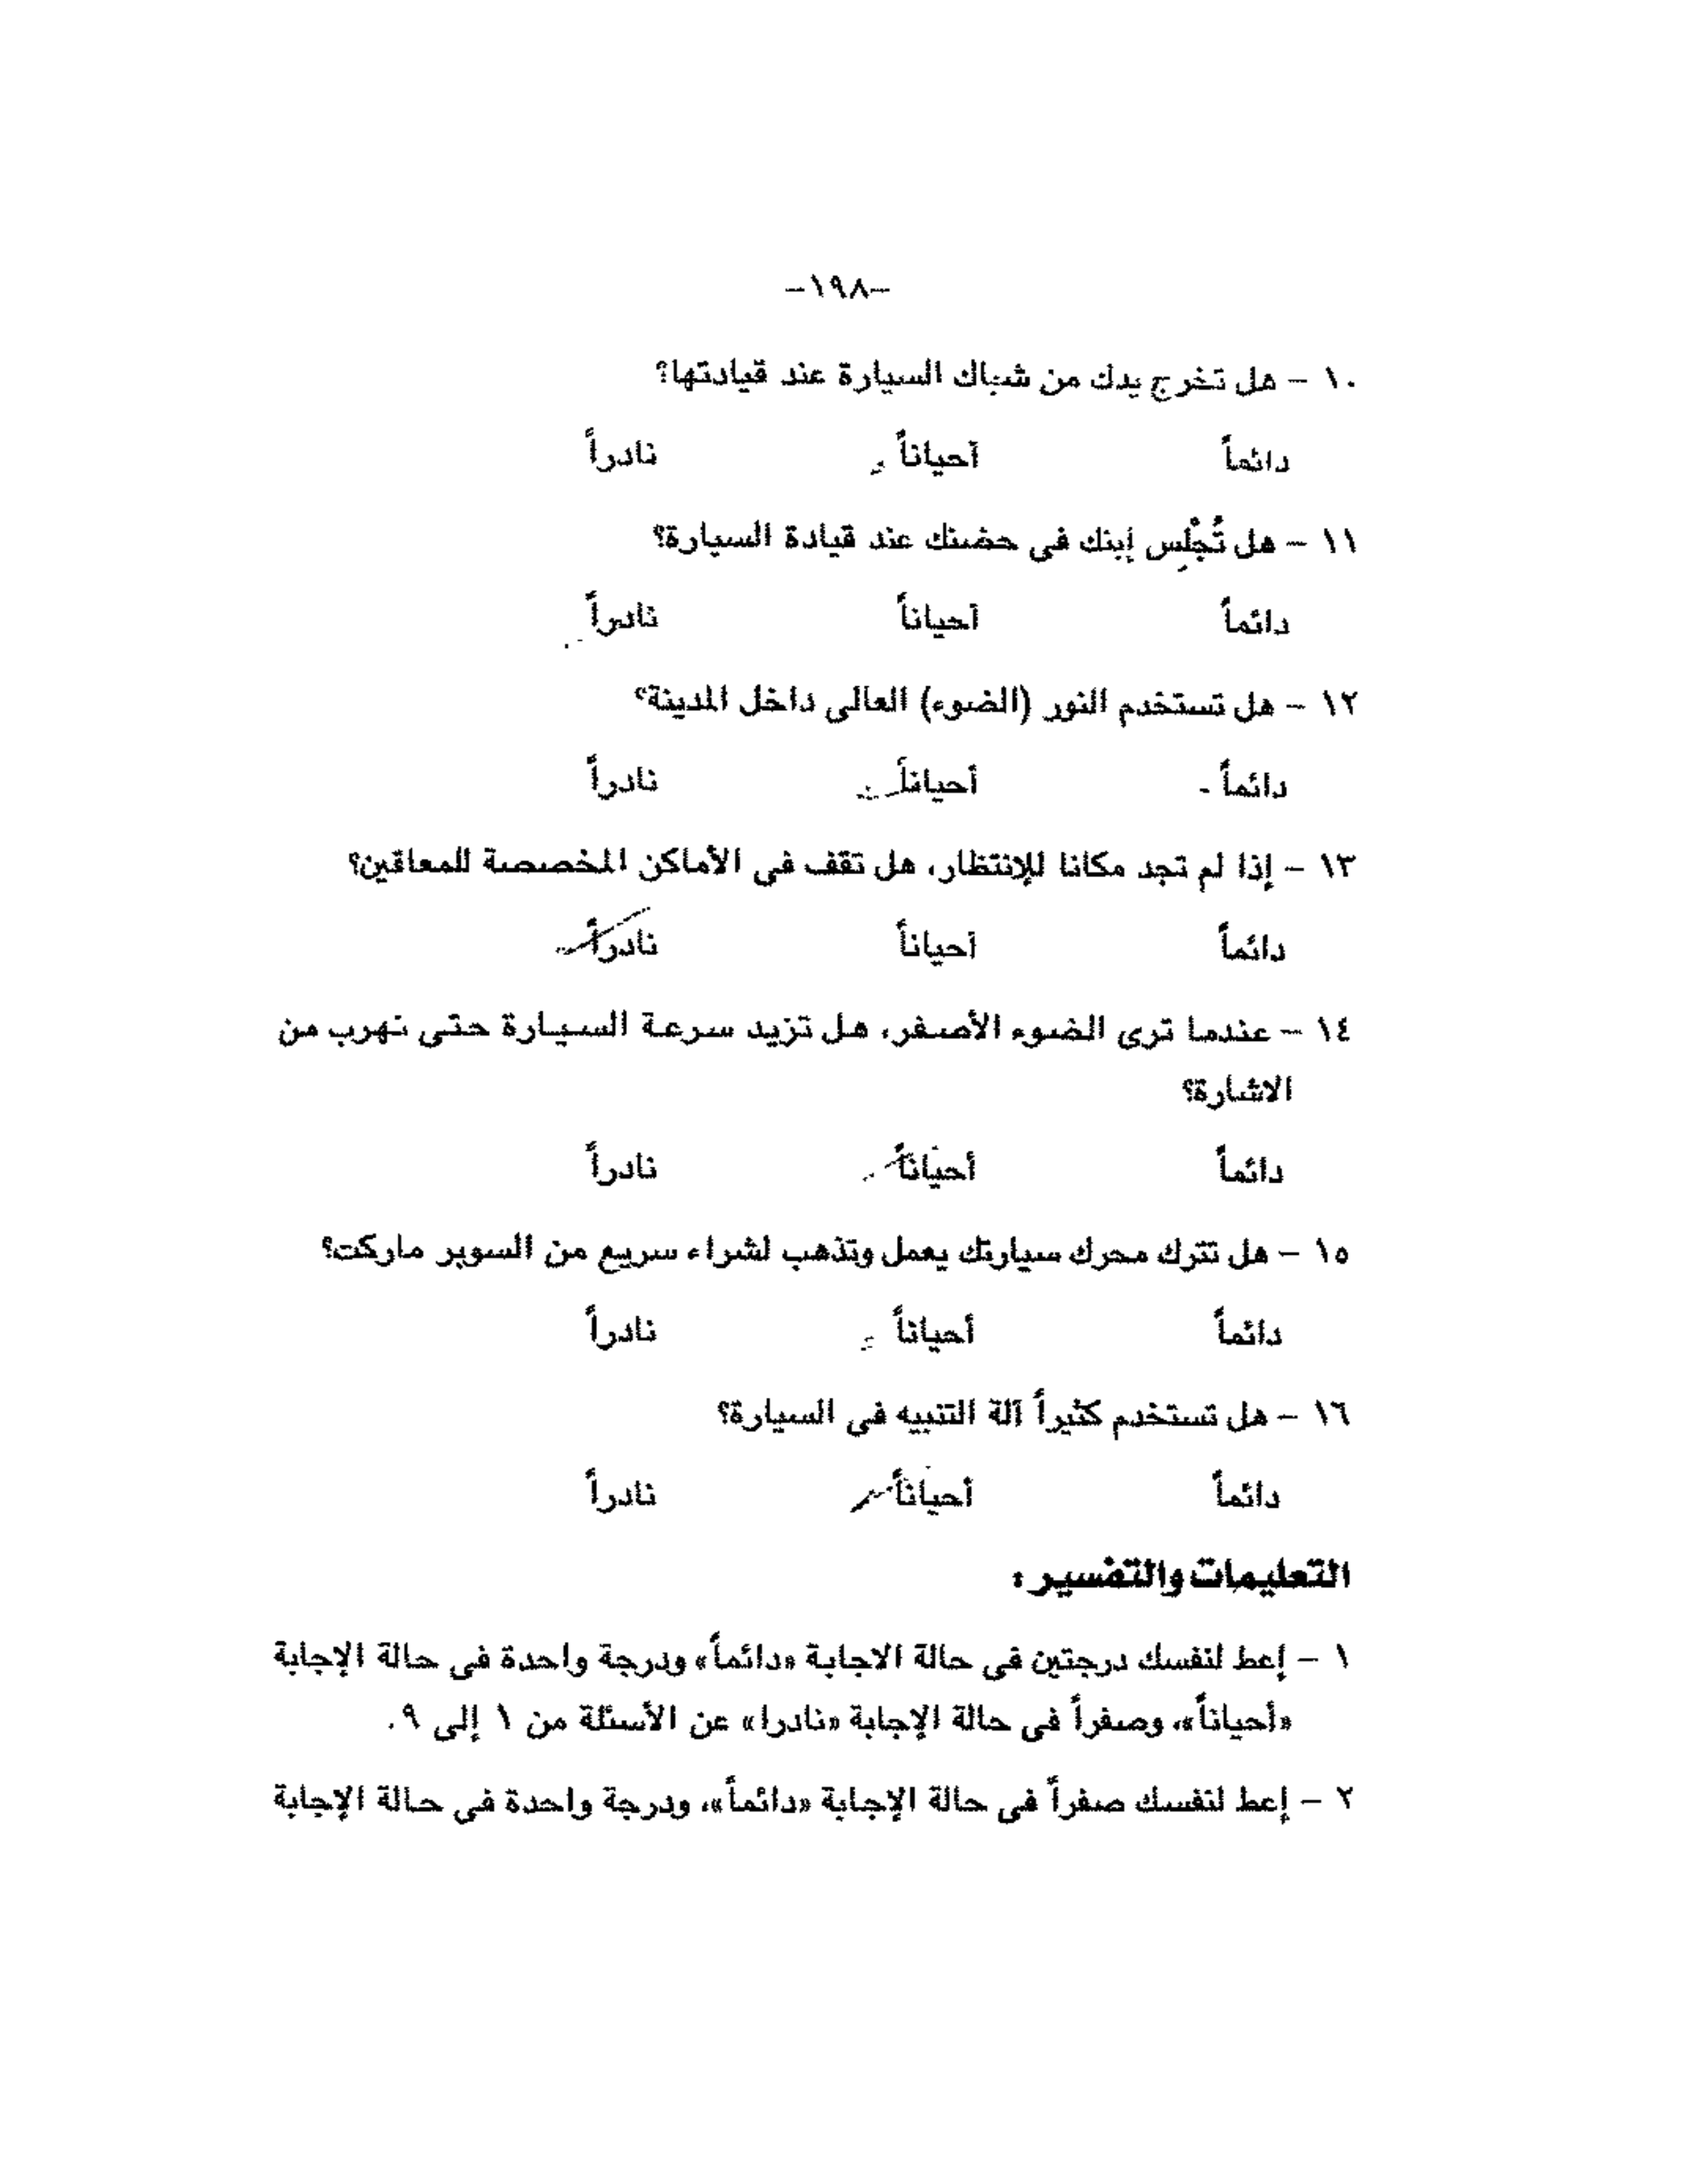 -١٩٨-
١٠ - هل تخرج يدك من شباك السيارة عند قيادتها؟
دائماً أحياناً نادراً
١١ - هل تُجْلِس إبنك فى حضنك عند قيادة السيارة؟
دائماً أحياناً نادراً
١٢ - هل تستخدم النور (الضوء) العالى داخل المدينة؟
دائماً أحياناً نادراً
١٣ - إذا لم تجد مكانا للإنتظار، هل تقف فى الأماكن المخصصة للمعاقين؟
دائماً أحياناً نادراً
١٤ - عندما ترى الضوء الأصفر، هل تزيد سرعة السيارة حتى تهرب من
الاشارة؟
دائماً أحياناً نادراً
١٥ - هل تترك محرك سيارتك يعمل وتذهب لشراء سريع من السوبر ماركت؟
دائماً أحياناً نادراً
١٦ - هل تستخدم كثيراً آلة التنبيه فى السيارة؟
دائماً أحياناً نادراً
التعليمات والتفسير:
١ - إعط لنفسك درجتين فى حالة الاجابة «دائماً» ودرجة واحدة فى حالة الإجابة
«أحياناً»، وصفراً فى حالة الإجابة «نادرا» عن الأسئلة من ١ إلى ٩.
٢ - إعط لنفسك صفراً فى حالة الإجابة «دائماً»، ودرجة واحدة فى حالة الإجابة